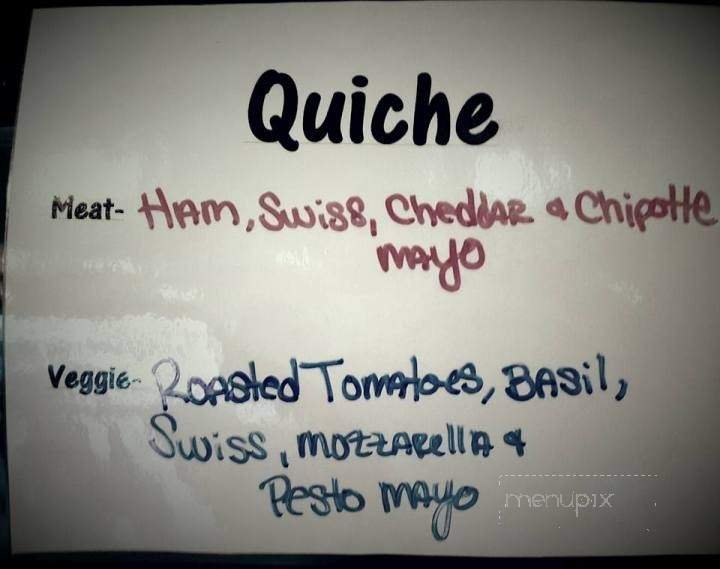 Quiche
Meat- Ham, Swiss, Cheddar & Chipotle
mayo
Veggie- Roasted Tomatoes, Basil,
Swiss, mozzarella &
Pesto mayo
menupix